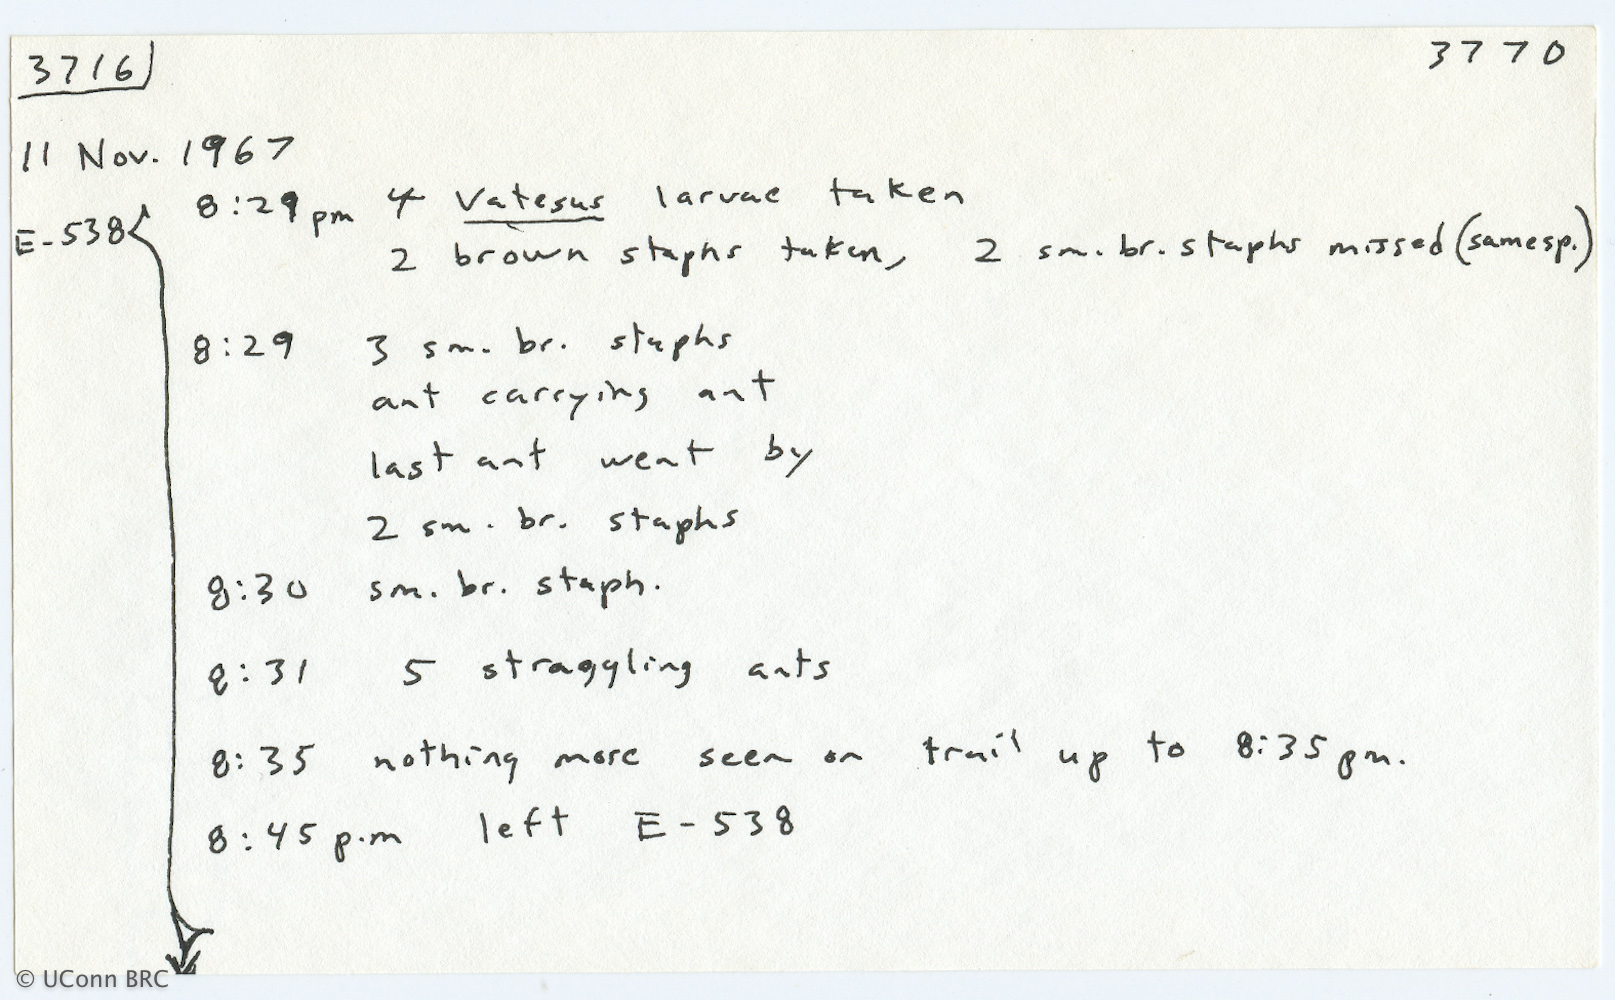 3716 3770
11 Nov. 1967
E-538 8:29 pm 4 Vatesus larvae taken
2 brown staphs taken, 2 sm. br. staphs missed (same sp.)
8:29 3 sm. br. staphs
ant carrying ant
last ant went by
2 sm. br. staphs
8:30 sm. br. staph.
8:31 5 straggling ants
8:35 nothing more seen on trail up to 8:35 pm.
8:45 p.m left E-538
© UConn BRC